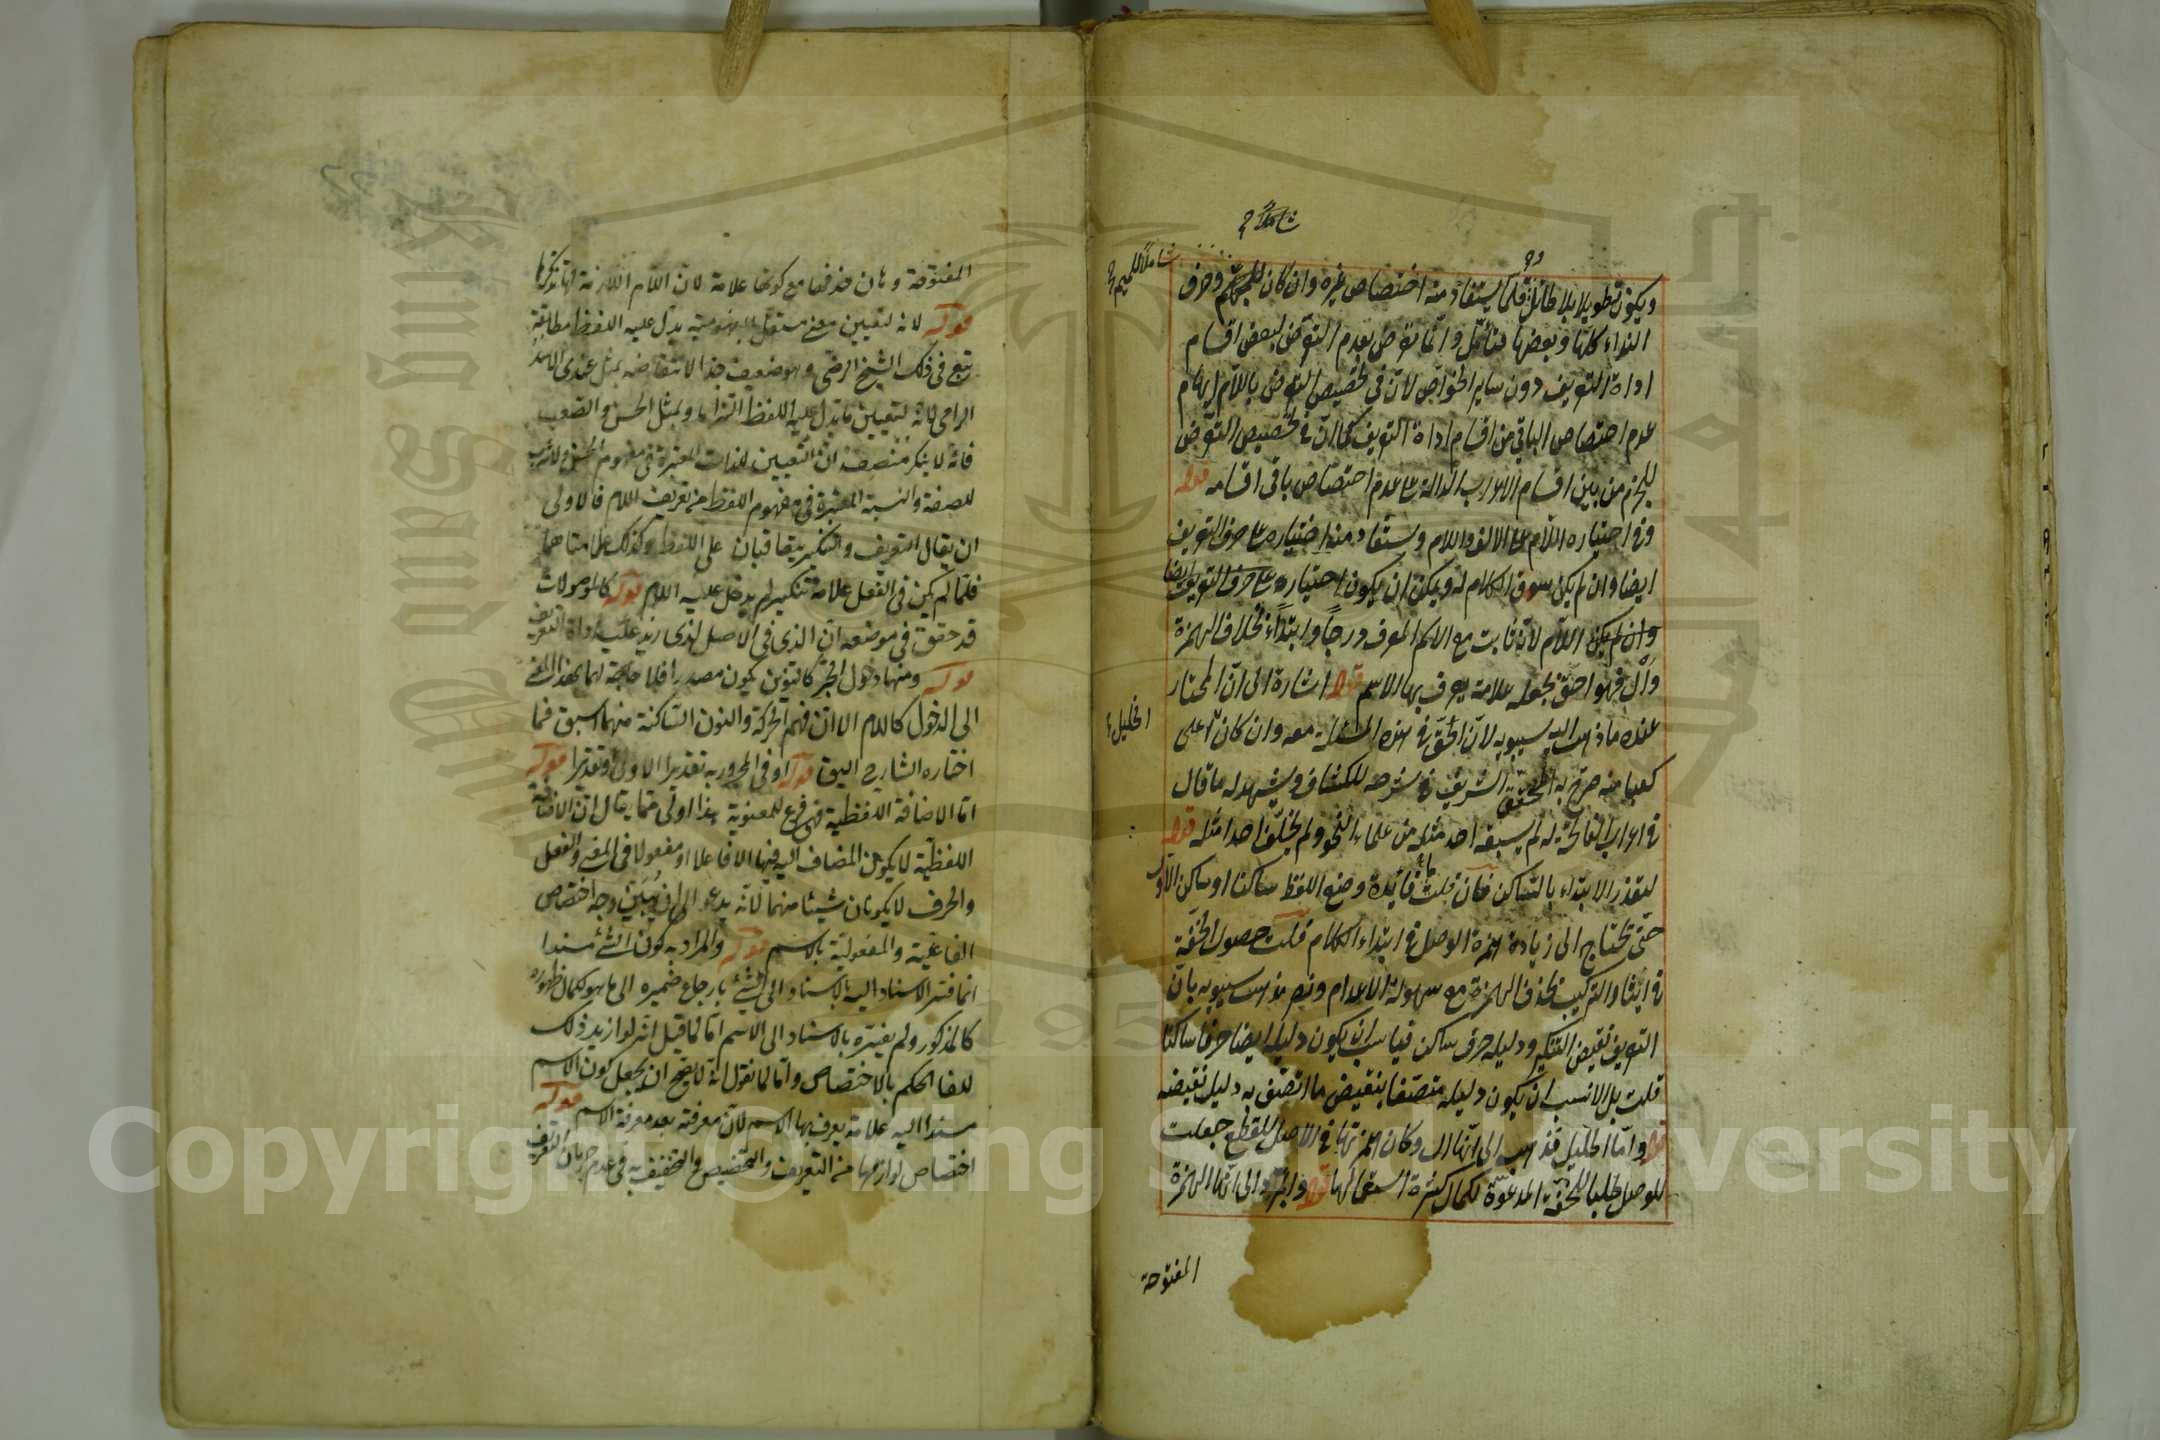 شاملا
شاملا للميم
ويكون تطويلا بلا طائل قلت يستفاد منه اختصاص غيره وان كان للميم وحرف
النداء كلها وبعضها فتأمل وانما تعرض بعدم التعرض لبعض اقسام
اداة التعريف دون ساير الخواص لان في تخصيص التعرض باللام ايهام
عدم اختصاص الباقي من اقسام اداة التعريف كما ان في تخصيص التعرض
للجر من بين اقسام الاعراب الدالة على عدم اختصاص باقي اقسامه قوله
وفي اختياره اللام على الالف واللام ويستفاد منه اختياره على حرف التعريف
ايضا وان لم يكن سوق الكلام له ويمكن ان يكون اختياره على حرف التعريف ايضا
وان لم يكن اللام لانه ثابت مع الاسم المعرف درجا وابتداء بخلاف الهمزة
وال فهو احق بجعله علامة يعرف بها الاسم قوله اشارة الى ان المختار
الخليل
عنده ما ذهب اليه سيبويه لان الحق في هذه المسئلة معه وان كان اعلى
كعبا منه صرح به المحقق الشريف في شرحه للكشاف ويشهد له ما قال
في اعراب الفاتحة له لم يسبقه احد مثله من علماء النحو ولم يخلف احدا مثله قوله
لتعذر الابتداء بالساكن فان قلت ما فائدة وضع اللفظ ساكنا او ساكن الاول
حتى تحتاج الى زيادة همزة الوصل في ابتداء الكلام قلت حصول الخفة
في اثناء التركيب بحذف الهمزة مع سهولة الادغام ونصر مذهب سيبويه بان
التعريف نقيض التنكير ودليله حرف ساكن فياسب ان يكون دليله ايضا حرفا ساكنا
قلت بل الانسب ان يكون دليله متصفا بنقيض ما اتصف به دليل نقيضه
قوله واما الخليل فذهب الى انها ال وكان همزتها في الاصل للقطع جعلت
للوصل طلبا للخفة المدعوة لكمال كثرة استعمالها قوله والمبرد الى انها الهمزة
المفتوحة
المفتوحة وحدها
قوله لانه لتعيين معنى مستقل بالمفهومية يدل عليه اللفظ مطابقة
تبع في ذلك الشيخ الرضي وهو ضعيف جدا لانتقاضه بمثل عندي الاسد
الرامي لانه لتعيين ما يدل عليه اللفظ التزاما وبمثل الحسن والصعب
فانه لا ينكر منصف ان التعيين للذات المعتبرة في مفهوم الحسن
للصفة والنسبة المعتبرة في مفهوم اللفظ من تعريف اللام فالاولى
ان يقال التعريف والتنكير يتعاقبان على اللفظ وكذلك علامتاهما
فلما لم يكن في الفعل علامة تنكير لم يدخل عليه اللام قوله كالموصولات
قد حقق في موضعه ان الذي في الاصل لذي زيد عليه اداة التعريف
قوله ومنها دخول الجر كالتنوين يكون مصدرا فلا حاجة لهما بهذا المعنى
الى الدخول كاللام الا ان فهم الحركة والنون الساكنة منهما اسبق فما
اختاره الشارح اليق قوله او في المجرور به تقديرا الاولى وتقديرا قوله
اما الاضافة اللفظية فهي فرع للمعنوية هذا اولى مما يقال ان الاضافة
اللفظية لا يكون المضاف اليه فيها الا فاعلا او مفعولا في المعنى والفعل
والحرف لا يكونان شيئا منهما لانه يدعو الى ان يبين وجه اختصاص
الفاعلية والمفعولية بالاسم قوله والمراد به كون الشئ مسندا
انما فسر الاسناد اليه بالاسناد الى الشئ بارجاع ضميره الى ما هو لكمال ظهوره
كالمذكور ولم يفسره بالاسناد الى الاسم اما لما قيل انه لو اريد ذلك
للغا الحكم بالاختصاص واما لما نقول انه لا يصح ان يجعل كون الاسم
مسندا اليه علامة يعرف بها الاسم لان معرفته بعد معرفة الاسم قوله
اختصاص لوازمها من التعريف والتخصيص والتخفيف به في عدم جريان التعريف
Copyright © King Saud University
1957